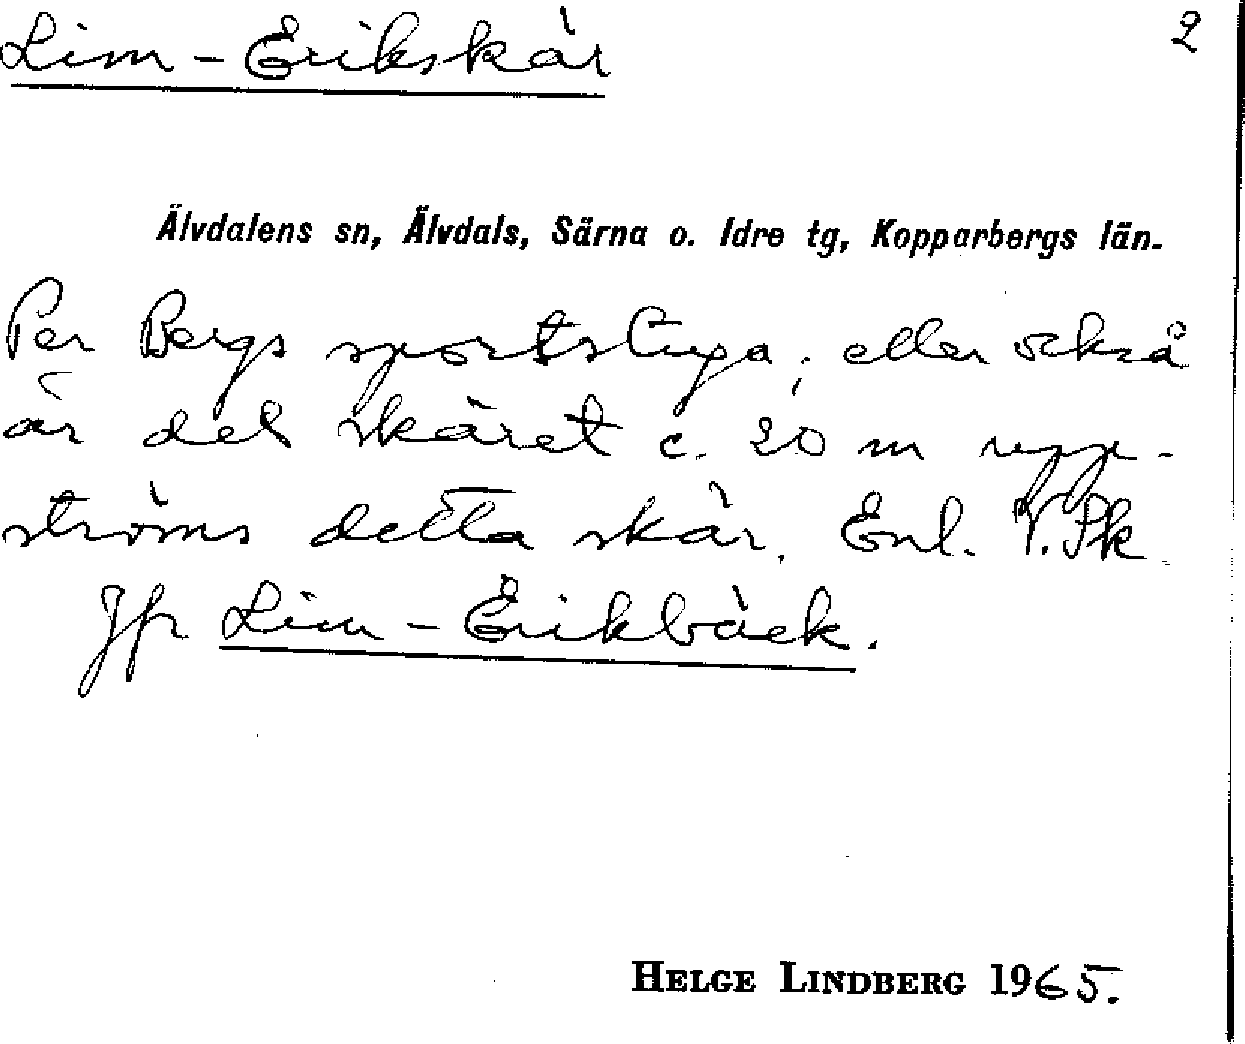 Lim-Erikskär 2
Älvdalens sn, Älvdals, Särna o. Idre tg, Kopparbergs län.
Per Bergs sportstuga; eller också
är det skäret c. 20 m upp-
ströms detta skär. Enl. V. Pk.
Jfr Lim-Erikbäck.
HELGE LINDBERG 1965.